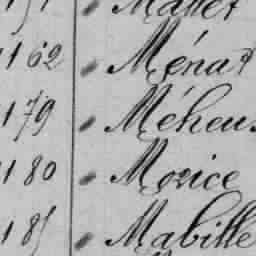 Mallet
1162 " Ménat
1179 " Méheus
1180 " Morice
1185 " Mabille